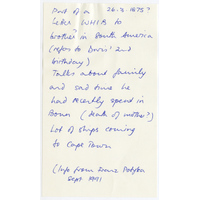 Part of a 26.2.1875?
letter WHIB to
brother? in South America
(refers to Doris' 2nd
birthday)
Talks about family
and sad time he
had recently spent in
Bonn (death of mother?)
Lot of ships coming
to Cape Town
(Info from Franz Potyka
Sept 1991